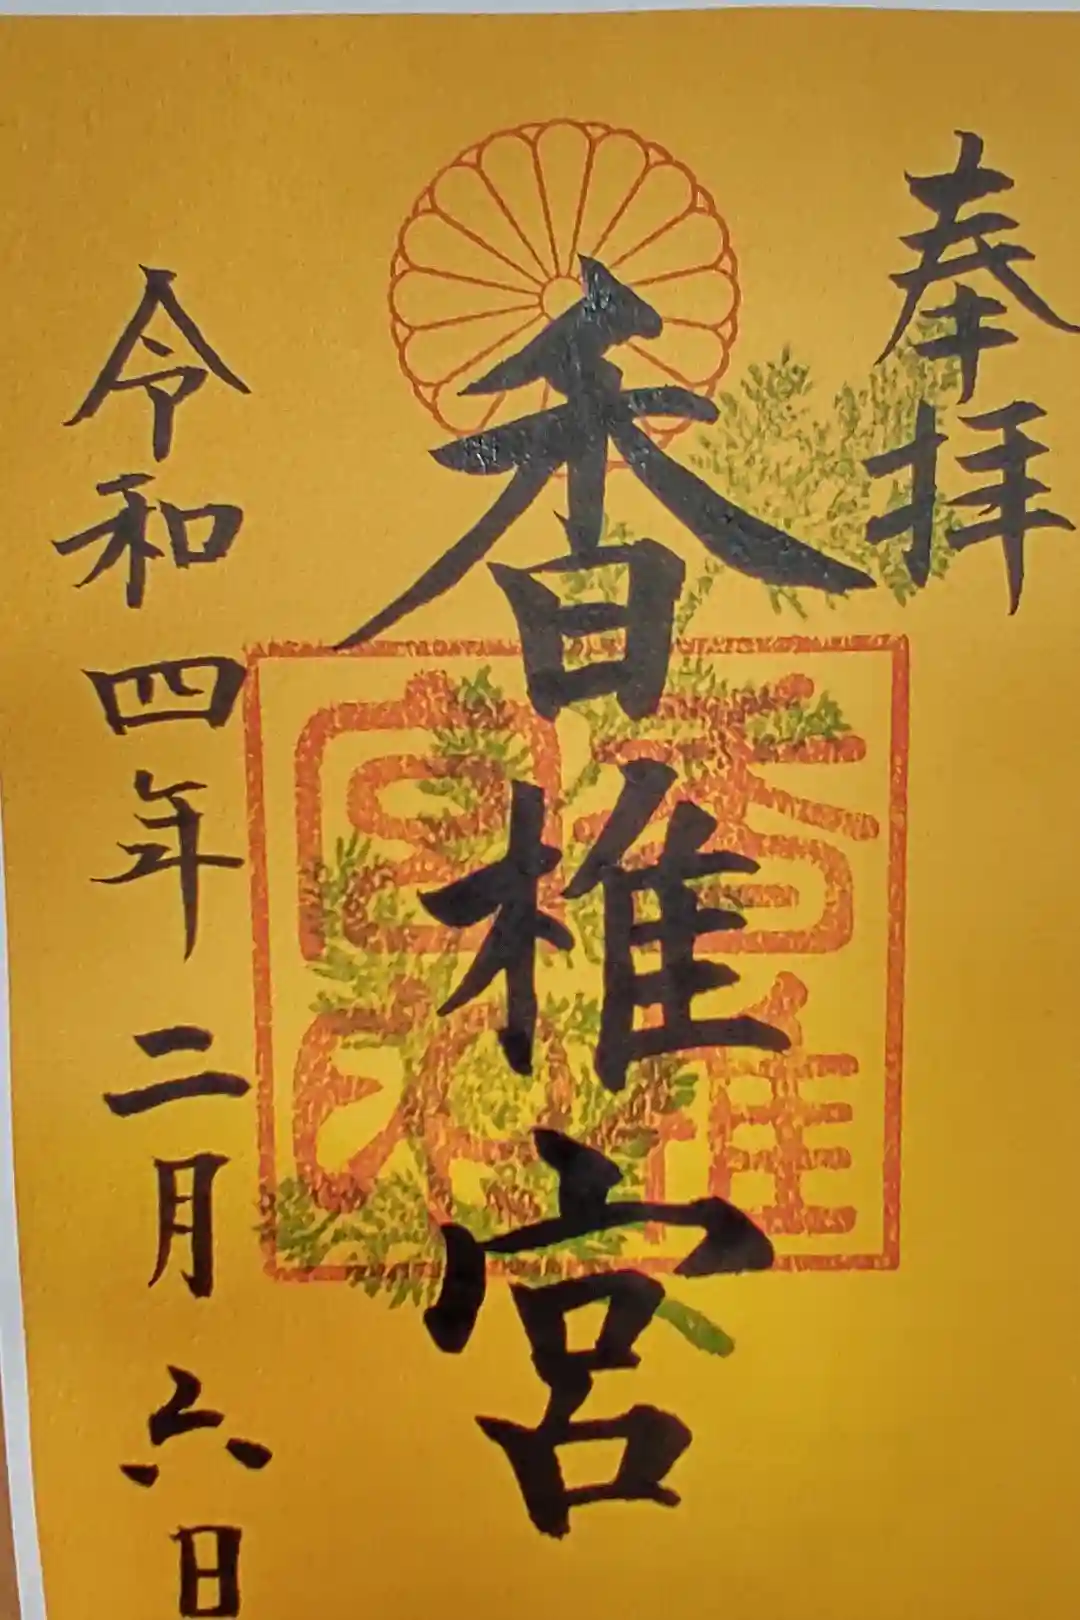 奉拝
香椎宮
香椎宮印
令和四年二月六日